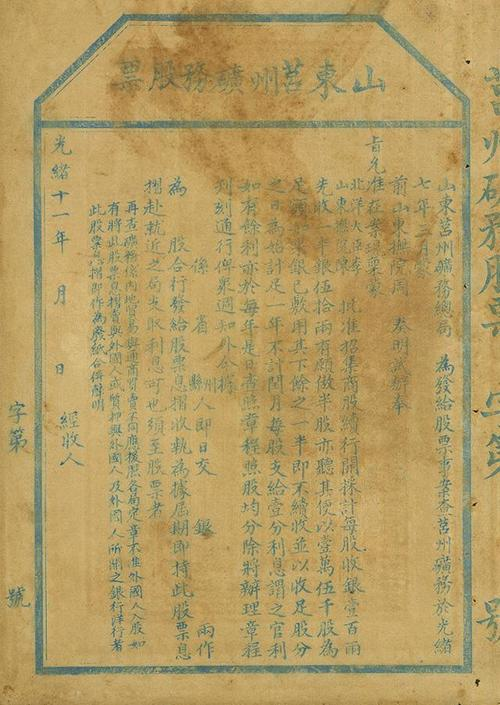 山東莒州礦務股票
山東莒州礦務總局　為發給股票事案查莒州礦務於光緒
七年三月蒙
前山東撫院周　奏明試辦奉
旨允准在案現稟蒙
北洋大臣李
山東撫院陳　批准招集商股續行開採計每股收銀壹百兩
先收一半銀伍拾兩有願做半股亦聽其便以壹萬伍千股為
足額如集銀已敷用其下餘之一半即不續收並以收足股分
之日為始計足一年不計閏月每股支給壹分利息謂之官利
如有餘利亦於每年是日查照章程照股均分除將辦理章程
刊刻通行俾眾週知外合換
係　省　州縣　人即日交　銀　兩作
為　股合行發給股票息摺收執為據屆期即持此股票息
摺赴就近之局支取利息可也須至股票者
再查礦務係內地貿易與通商買賣不同應援照各局定章不准外國人入股如
有將此股票息摺賣與外國人或質押與外國人及外國人所開之銀行洋行者
此股票息摺即作為廢紙合併聲明
光緒十一年　月　日　經收人
字第　號
莒州礦務股票　字第　號